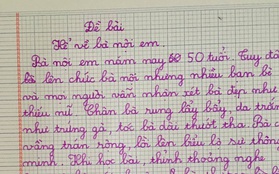 Đề bài
Kể về bà nội em.
Bà nội em năm nay 50 tuổi. Tuy đã
là lên chức bà nội nhưng nhiều bạn bè
và mọi người vẫn nhận xét bà đẹp như
thiếu nữ. Chân bà rung lẩy bẩy da trắng
như trứng gà, tóc bà dài thướt tha. Bà có
vầng trán rộng, lồi lên biểu lộ sự thông
minh. Khi học bài, thỉnh thoảng nghe